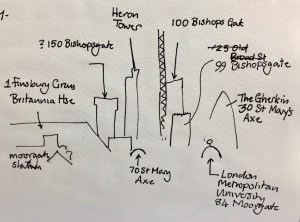 1-
Heron
Tower
100 Bishops Gat
? 150 Bishopsgate
25 Old
Broad St
99 Bishopsgate
1 Finsbury Circus
Britannia Hse
The Gherkin
30 St Mary's
Axe
moorgate
station
?
70 St Mary
Axe
London
Metropolitan
University
84 Moorgate